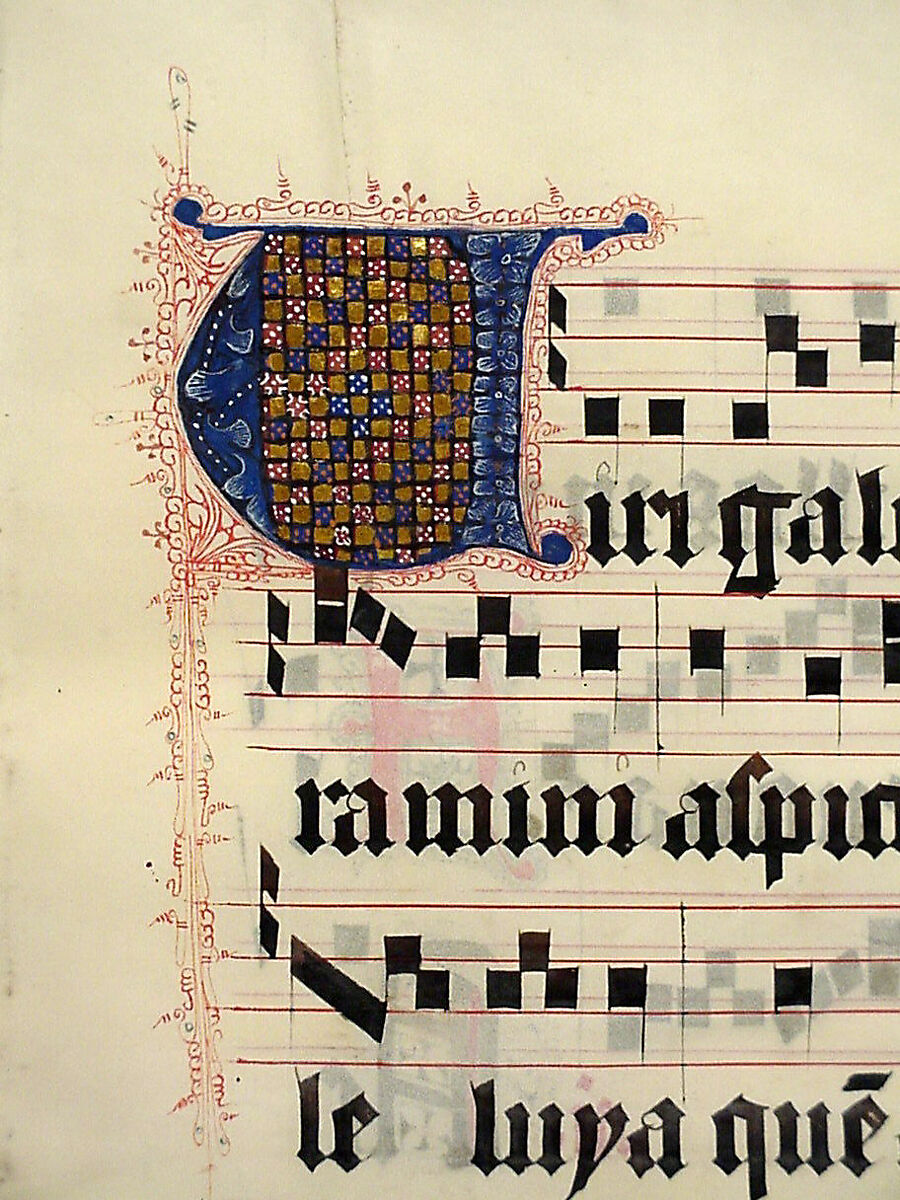 Viri gali
ramini aſpic
le luya quē